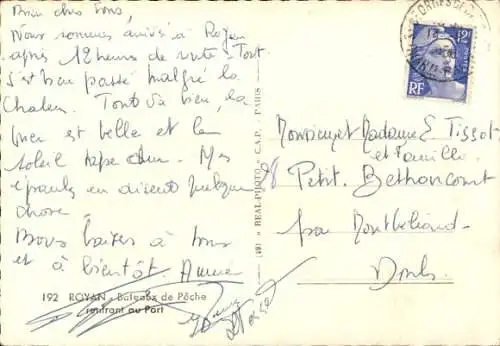 Bien chers tous,
Nous sommes arrivés à Royan
après 12 heures de route. Tout
s'est bien passé malgré la
Chaleur. Tout va bien, la
mer est belle et le
soleil tape dur. Mes
épaules en disent quelque
chose.
Bons baisers à tous
et à bientôt
192 ROYAN - Bateaux de Pêche
rentrant au Port
REAL-PHOTO C.A.P. PARIS
12F
POSTES
RF
Monsieur et Madame E. Tissot
et Famille
Petit. Bethoncourt
par Montbéliard
Doubs.